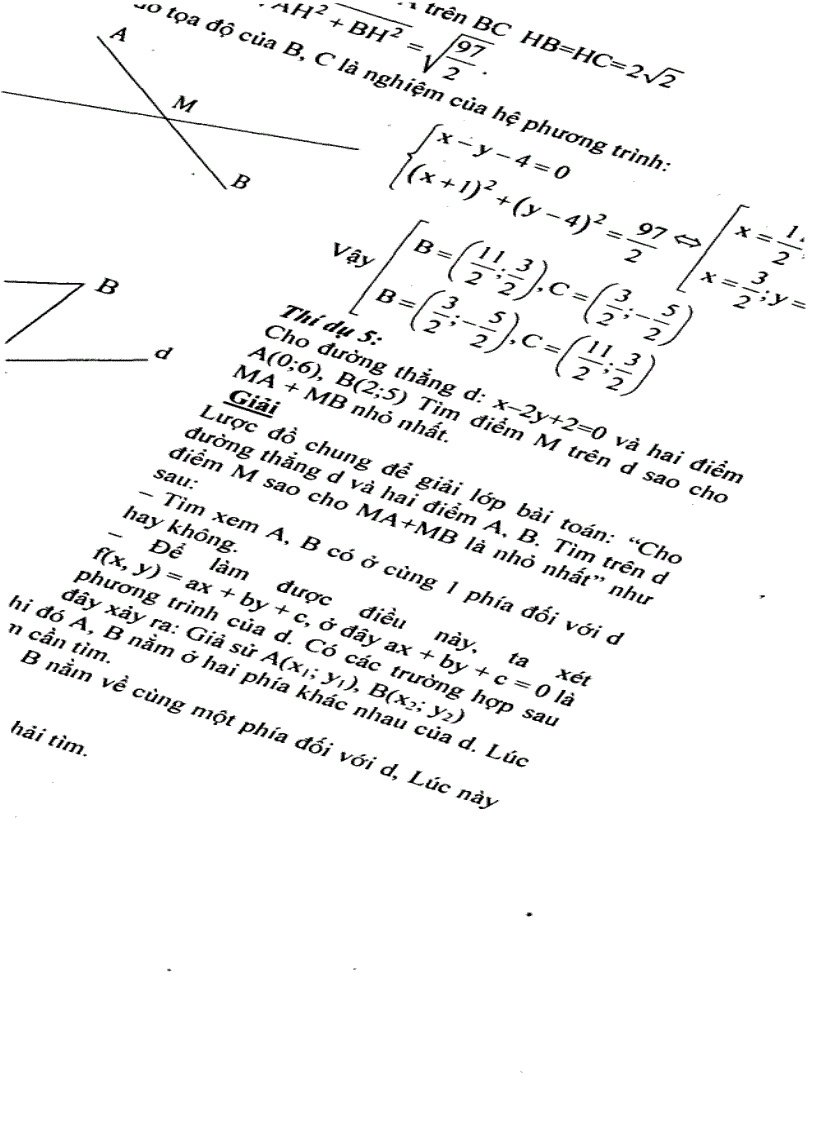 trên BC HB=HC=2√2
AH² + BH² = √(97/2).
tọa độ của B, C là nghiệm của hệ phương trình:
{ x − y − 4 = 0
(x + 1)² + (y − 4)² = 97/2 ⇔ [ x =
x = 3/2; y =
Vậy [ B = (11/2; 3/2), C = (3/2; −5/2)
B = (3/2; −5/2), C = (11/2; 3/2)
A
M
B
B
d
Thí dụ 5:
Cho đường thẳng d: x−2y+2=0 và hai điểm
A(0;6), B(2;5) Tìm điểm M trên d sao cho
MA + MB nhỏ nhất.
Giải
Lược đồ chung để giải lớp bài toán: “Cho
đường thẳng d và hai điểm A, B. Tìm trên d
điểm M sao cho MA+MB là nhỏ nhất” như
sau:
− Tìm xem A, B có ở cùng 1 phía đối với d
hay không.
− Để làm được điều này, ta xét
f(x, y) = ax + by + c, ở đây ax + by + c = 0 là
phương trình của d. Có các trường hợp sau
đây xảy ra: Giả sử A(x₁; y₁), B(x₂; y₂)
đó A, B nằm ở hai phía khác nhau của d. Lúc
cần tìm.
B nằm về cùng một phía đối với d, Lúc này
tìm.